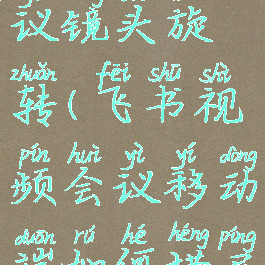 议镜头旋
zhuǎn fēi shū shì
转(飞书视
pín huì yì yí dòng
频会议移动
duān rú hé héng píng
端如何横屏